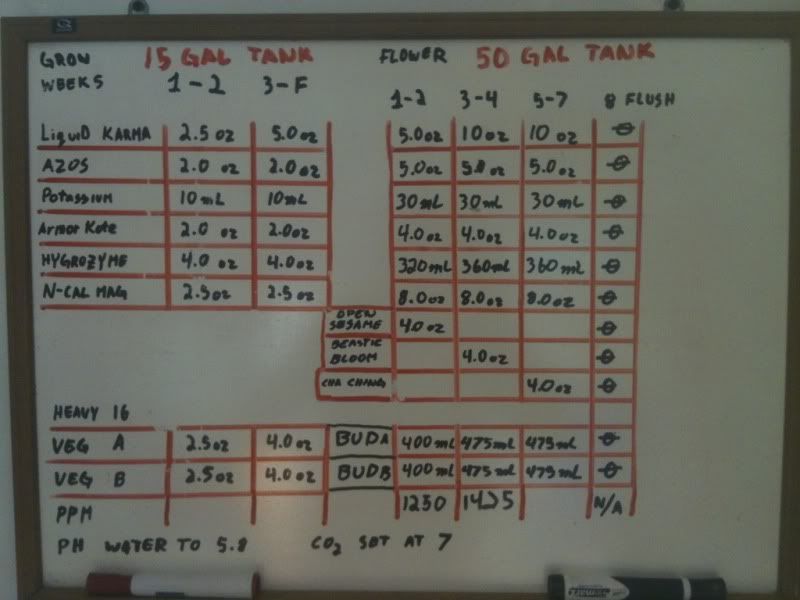 GROW 15 GAL TANK FLOWER 50 GAL TANK
WEEKS 1-2 3-F 1-2 3-4 5-7 8 FLUSH
LIQUID KARMA 2.5 oz 5.0 oz 5.0 oz 10 oz 10 oz ⊖
AZOS 2.0 oz 2.0 oz 5.0 oz 5.0 oz 5.0 oz ⊖
Potassium 10 mL 10 mL 30 mL 30 mL 30 mL ⊖
Armor Kote 2.0 oz 2.0 oz 4.0 oz 4.0 oz 4.0 oz ⊖
HYGROZYME 4.0 oz 4.0 oz 320 mL 360 mL 360 mL ⊖
N-CAL MAG 2.5 oz 2.5 oz 8.0 oz 8.0 oz 8.0 oz ⊖
OPEN SESAME 4.0 oz ⊖
BEASTIE BLOOM 4.0 oz ⊖
CHA CHING 4.0 oz ⊖
HEAVY 16
VEG A 2.5 oz 4.0 oz BUD A 400 mL 475 mL 475 mL ⊖
VEG B 2.5 oz 4.0 oz BUD B 400 mL 475 mL 475 mL ⊖
PPM 1250 N/A
PH WATER TO 5.8 CO2 SET AT 7